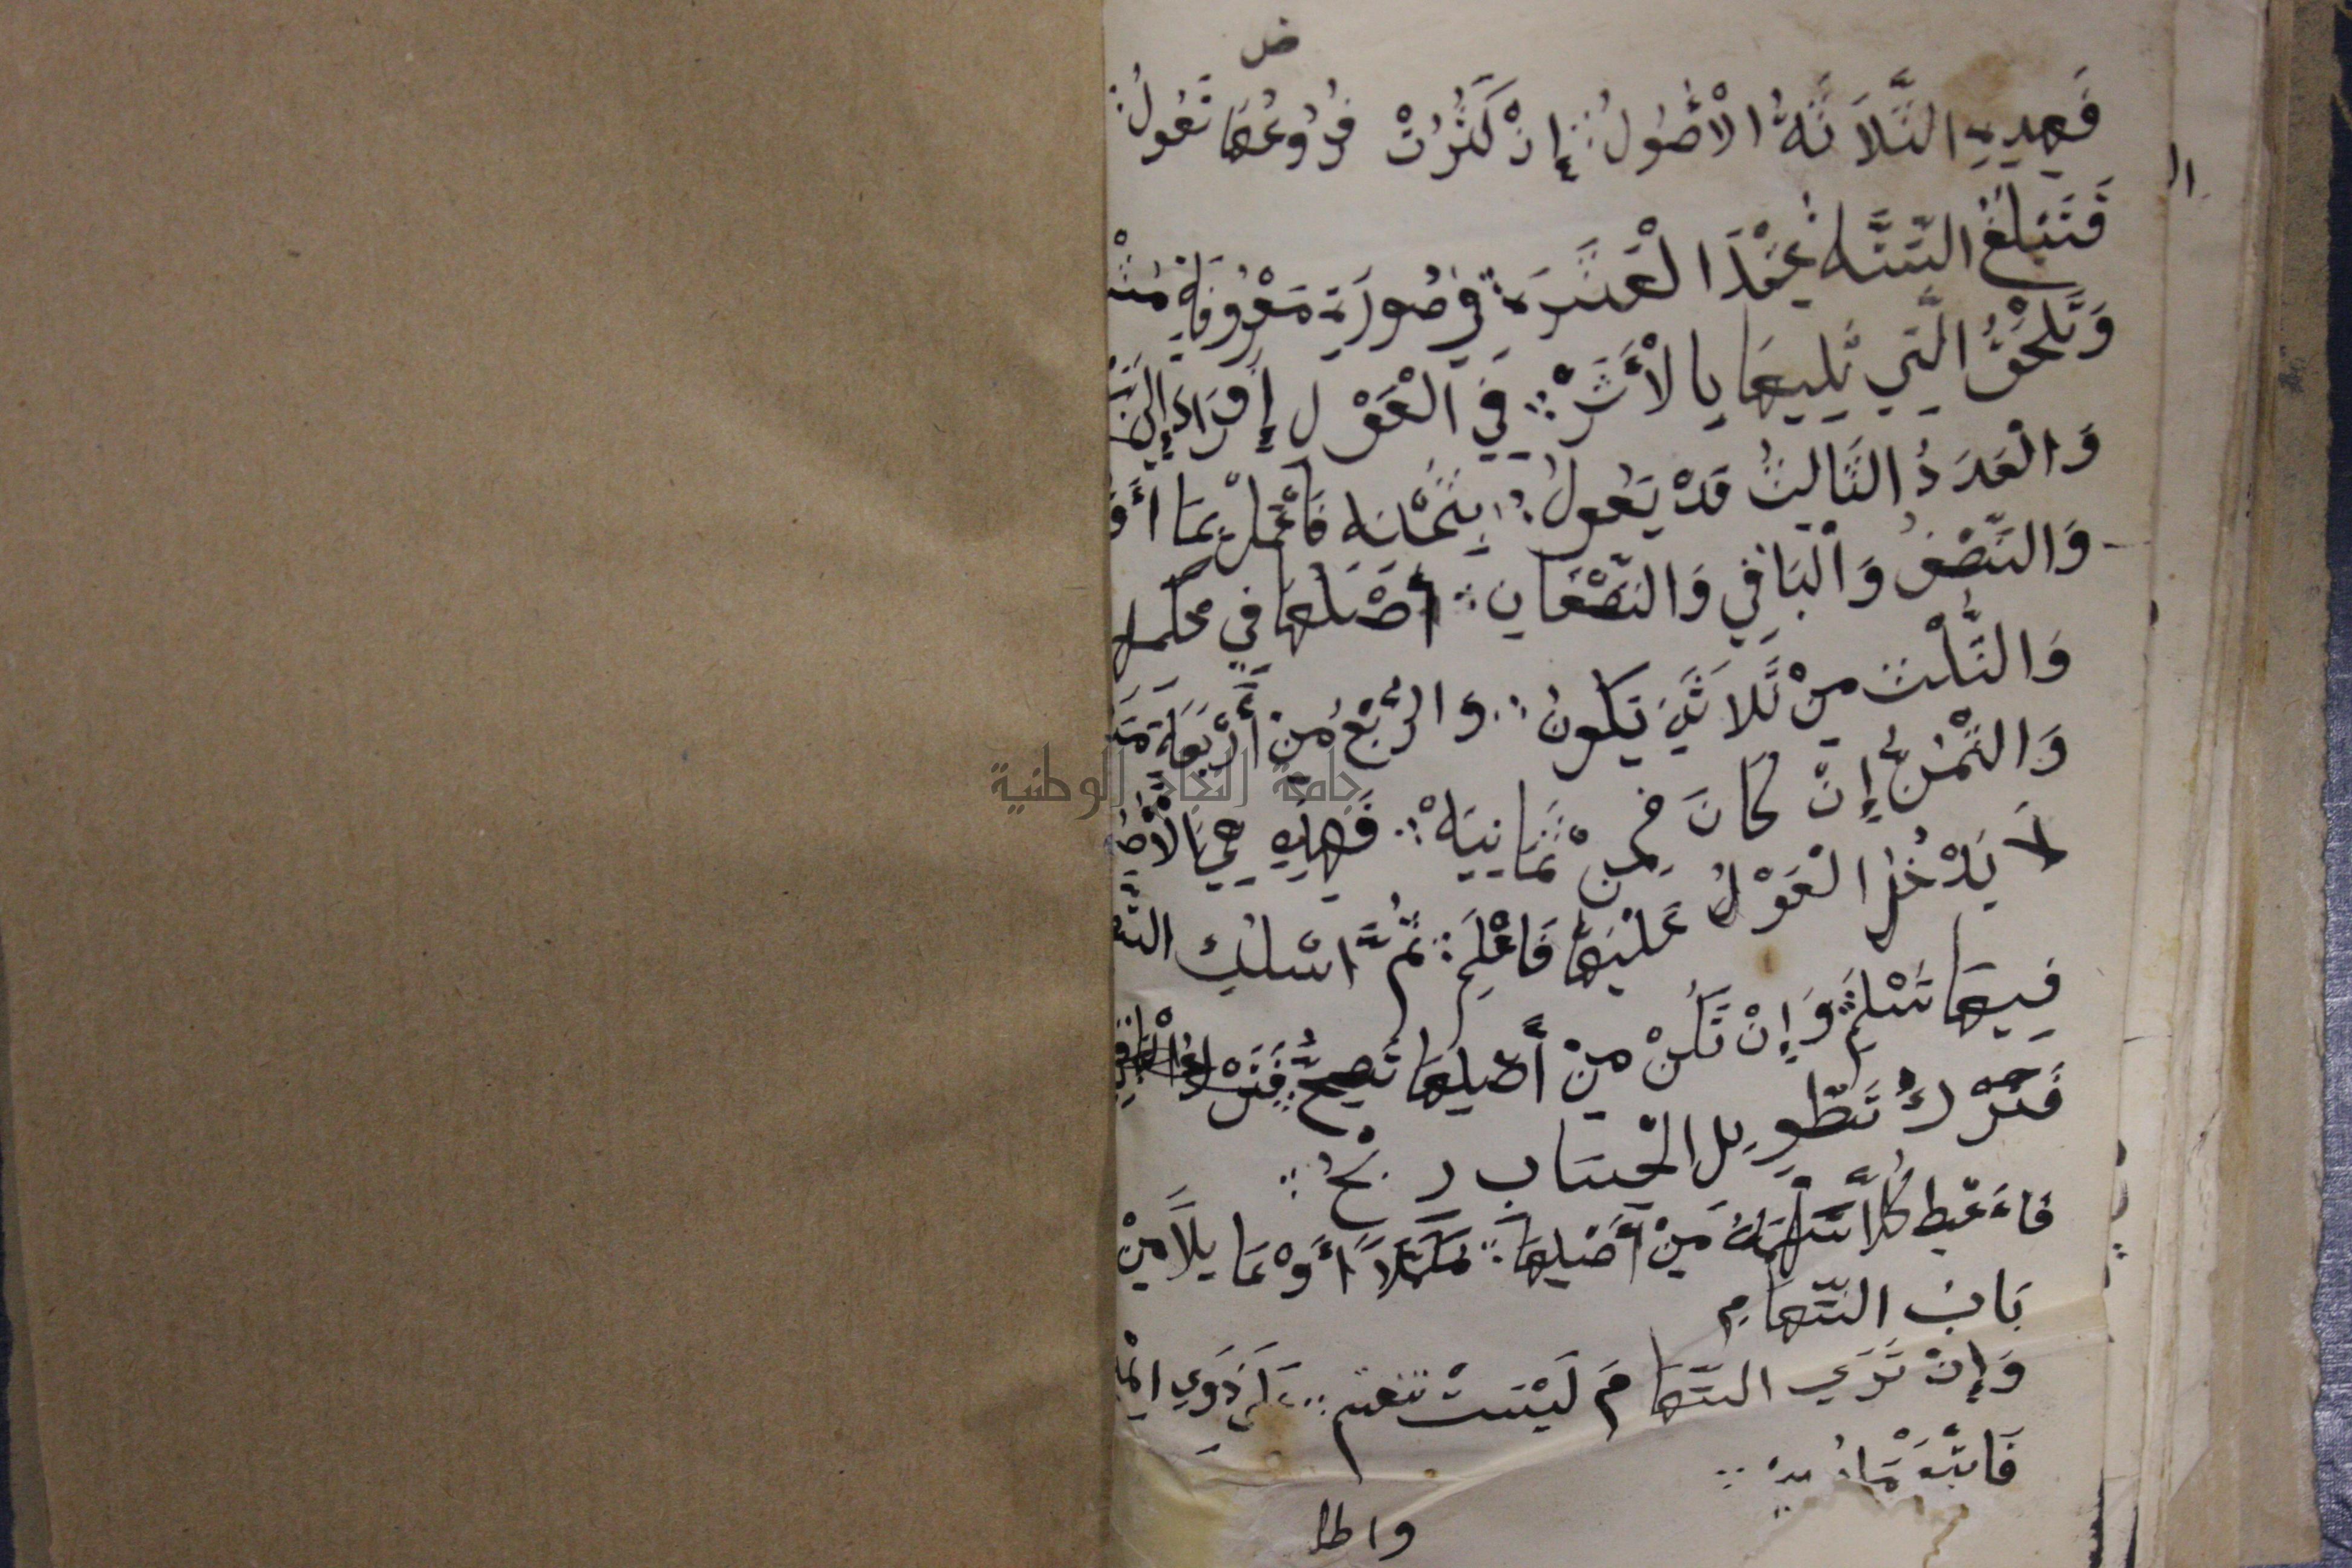 ض
فَهَذِهِ الثَّلَاثَةُ الْأُصُولُ ∴ إِنْ كَثُرَتْ فُرُوعُهَا تَعُولُ ∴
فَتَبْلُغُ السِّتَّةُ عِقْدَ الْعَشَرَةِ ∴ فِي صُورَةٍ مَعْرُوفَةٍ مُشْ
وَتَلْحَقُ الَّتِي تَلِيهَا بِالْأَثَرْ ∴ فِي الْعَوْلِ إِفْرَادًا إِلَى
وَالْعَدَدُ الثَّالِثُ قَدْ يَعُولُ ∴ بِثُمْنِهِ فَاعْمَلْ بِمَا أَقُ
وَالنِّصْفُ وَالْبَاقِي وَالنِّصْفَانِ ∴ أَصْلُهَا فِي حكمهم
وَالثُّلْثُ مِنْ ثَلَاثَةٍ يَكُونُ ∴ وَالرُّبْعُ مِنْ أَرْبَعَةٍ مَ
وَالثُّمْنُ إِنْ كَانَ فَمِنْ ثَمَانِيَهْ ∴ فَهَذِهِ هِيَ الْأُصُ
لَا يَدْخُلُ الْعَوْلُ عَلَيْهَا فَاعْلَمِ ∴ ثُمَّ اسْلُكِ التَّ
فِيهَا تَسْلَمِ ∴ وَإِنْ تَكُنْ مِنْ أَصْلِهَا تَصِحُّ ∴
فَتَرْكُ تَطْوِيلِ الْحِسَابِ رِبْحُ ∴
فَاعْطِ كُلًّا سَهْمَهُ مِنْ أَصْلِهَا ∴ مُكَمَّلًا أَوْ عَائِلًا مِنْ
بَابُ السِّهَامِ
وَإِنْ تَرَى السِّهَامَ لَيْسَتْ تنقسم ∴ عَلَى ذَوِي الْمِ
والطا
جامعة النجاح الوطنية